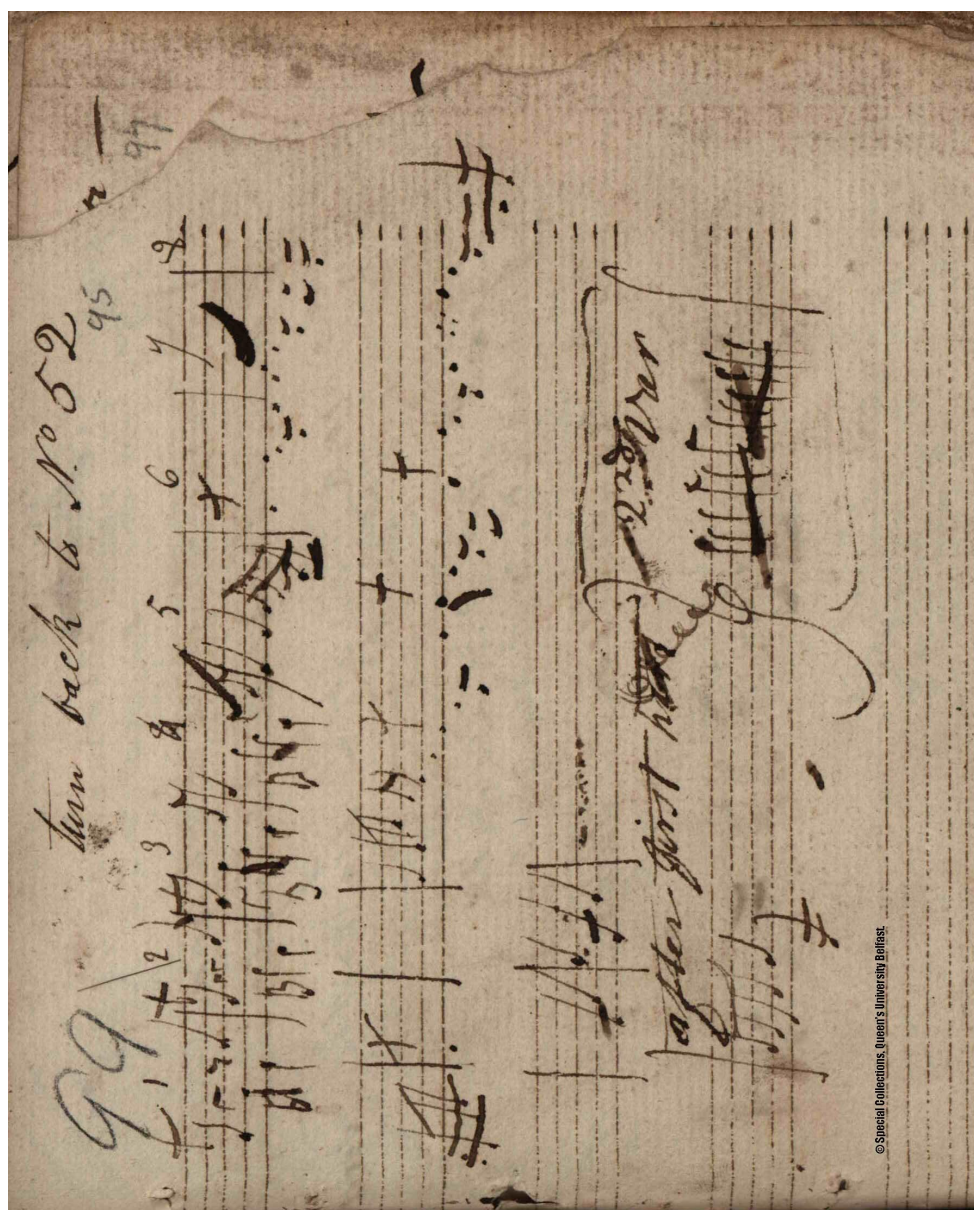 turn back to No 52
95
94
99
1 2 3 4 5 6 7 8
2d Ver
after first
© Special Collections, Queen's University Belfast.